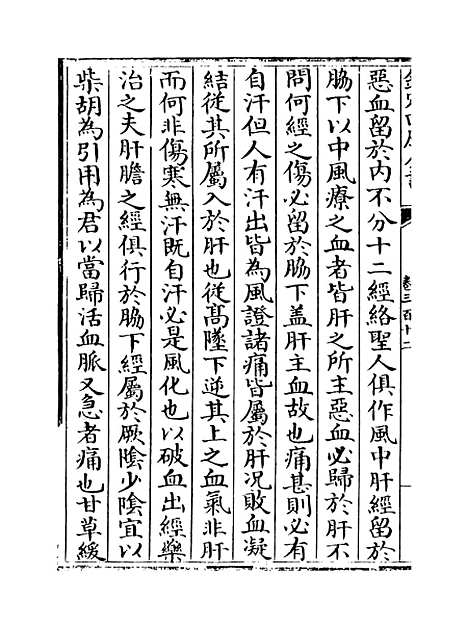 卷三百十二
惡血留於内不分十二經絡聖人俱作風中肝經留於
脇下以中風療之血者皆肝之所主惡血必歸於肝不
問何經之傷必留於脇下盖肝主血故也痛甚則必有
自汗但人有汗出皆為風證諸痛皆屬於肝况敗血凝
結從其所屬入於肝也從髙墜下逆其上之血氣非肝
而何非傷寒無汗既自汗必是風化也以破血出經藥
治之夫肝膽之經俱行於脇下經屬於厥陰少陰宜以
柴胡為引用為君以當歸活血脈又急者痛也甘草緩